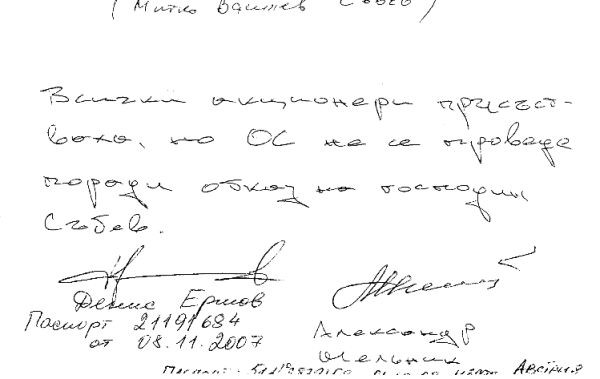 (Митко Василев Събев)
Всички акционери присъст-
ваха, но ОС не се проведе
поради отказ на господин
Събев.
Денис Ершов
Паспорт 21191684
от 08.11.2007
Александр
Мельник